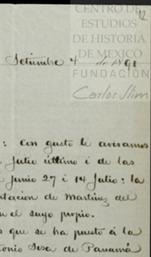 CENTRO DE
ESTUDIOS
DE HISTORIA
DE MEXICO
FUNDACIÓN
Carlos Slim
Setiembre 4 de 1891
: Con gusto le avisamos
Julio último i de las
Junio 27 i 14 Julio: la
tacion de Martinez del
n el suyo propio.
os que se ha puesto á la
onio Sosa de Panamá